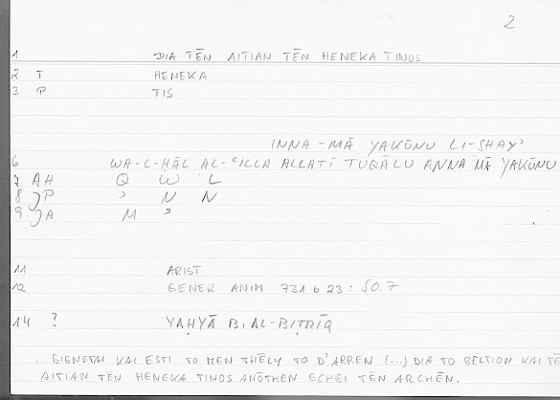 2
1 DIA TĒN AITIAN TĒN HENEKA TINOS
2 T HENEKA
3 P TIS
INNA-MĀ YAKŪNU LI-SHAY'
6 WA-L-ḤĀL AL-ʿILLA ALLATĪ TUQĀLU ANNA MĀ YAKŪNU
7 AH Q W L
8 JP ' N N
9 JA M '
11 ARIST
12 GENER ANIM 731 b 23 : 50.7
14 ? YAḤYĀ B. AL-BIṬRĪQ
... GIGNETAI KAI ESTI TO MEN THĒLY TO D'ARREN (...) DIA TO BELTION KAI TĒ
AITIAN TĒN HENEKA TINOS ANŌTHEN ECHEI TĒN ARCHĒN.